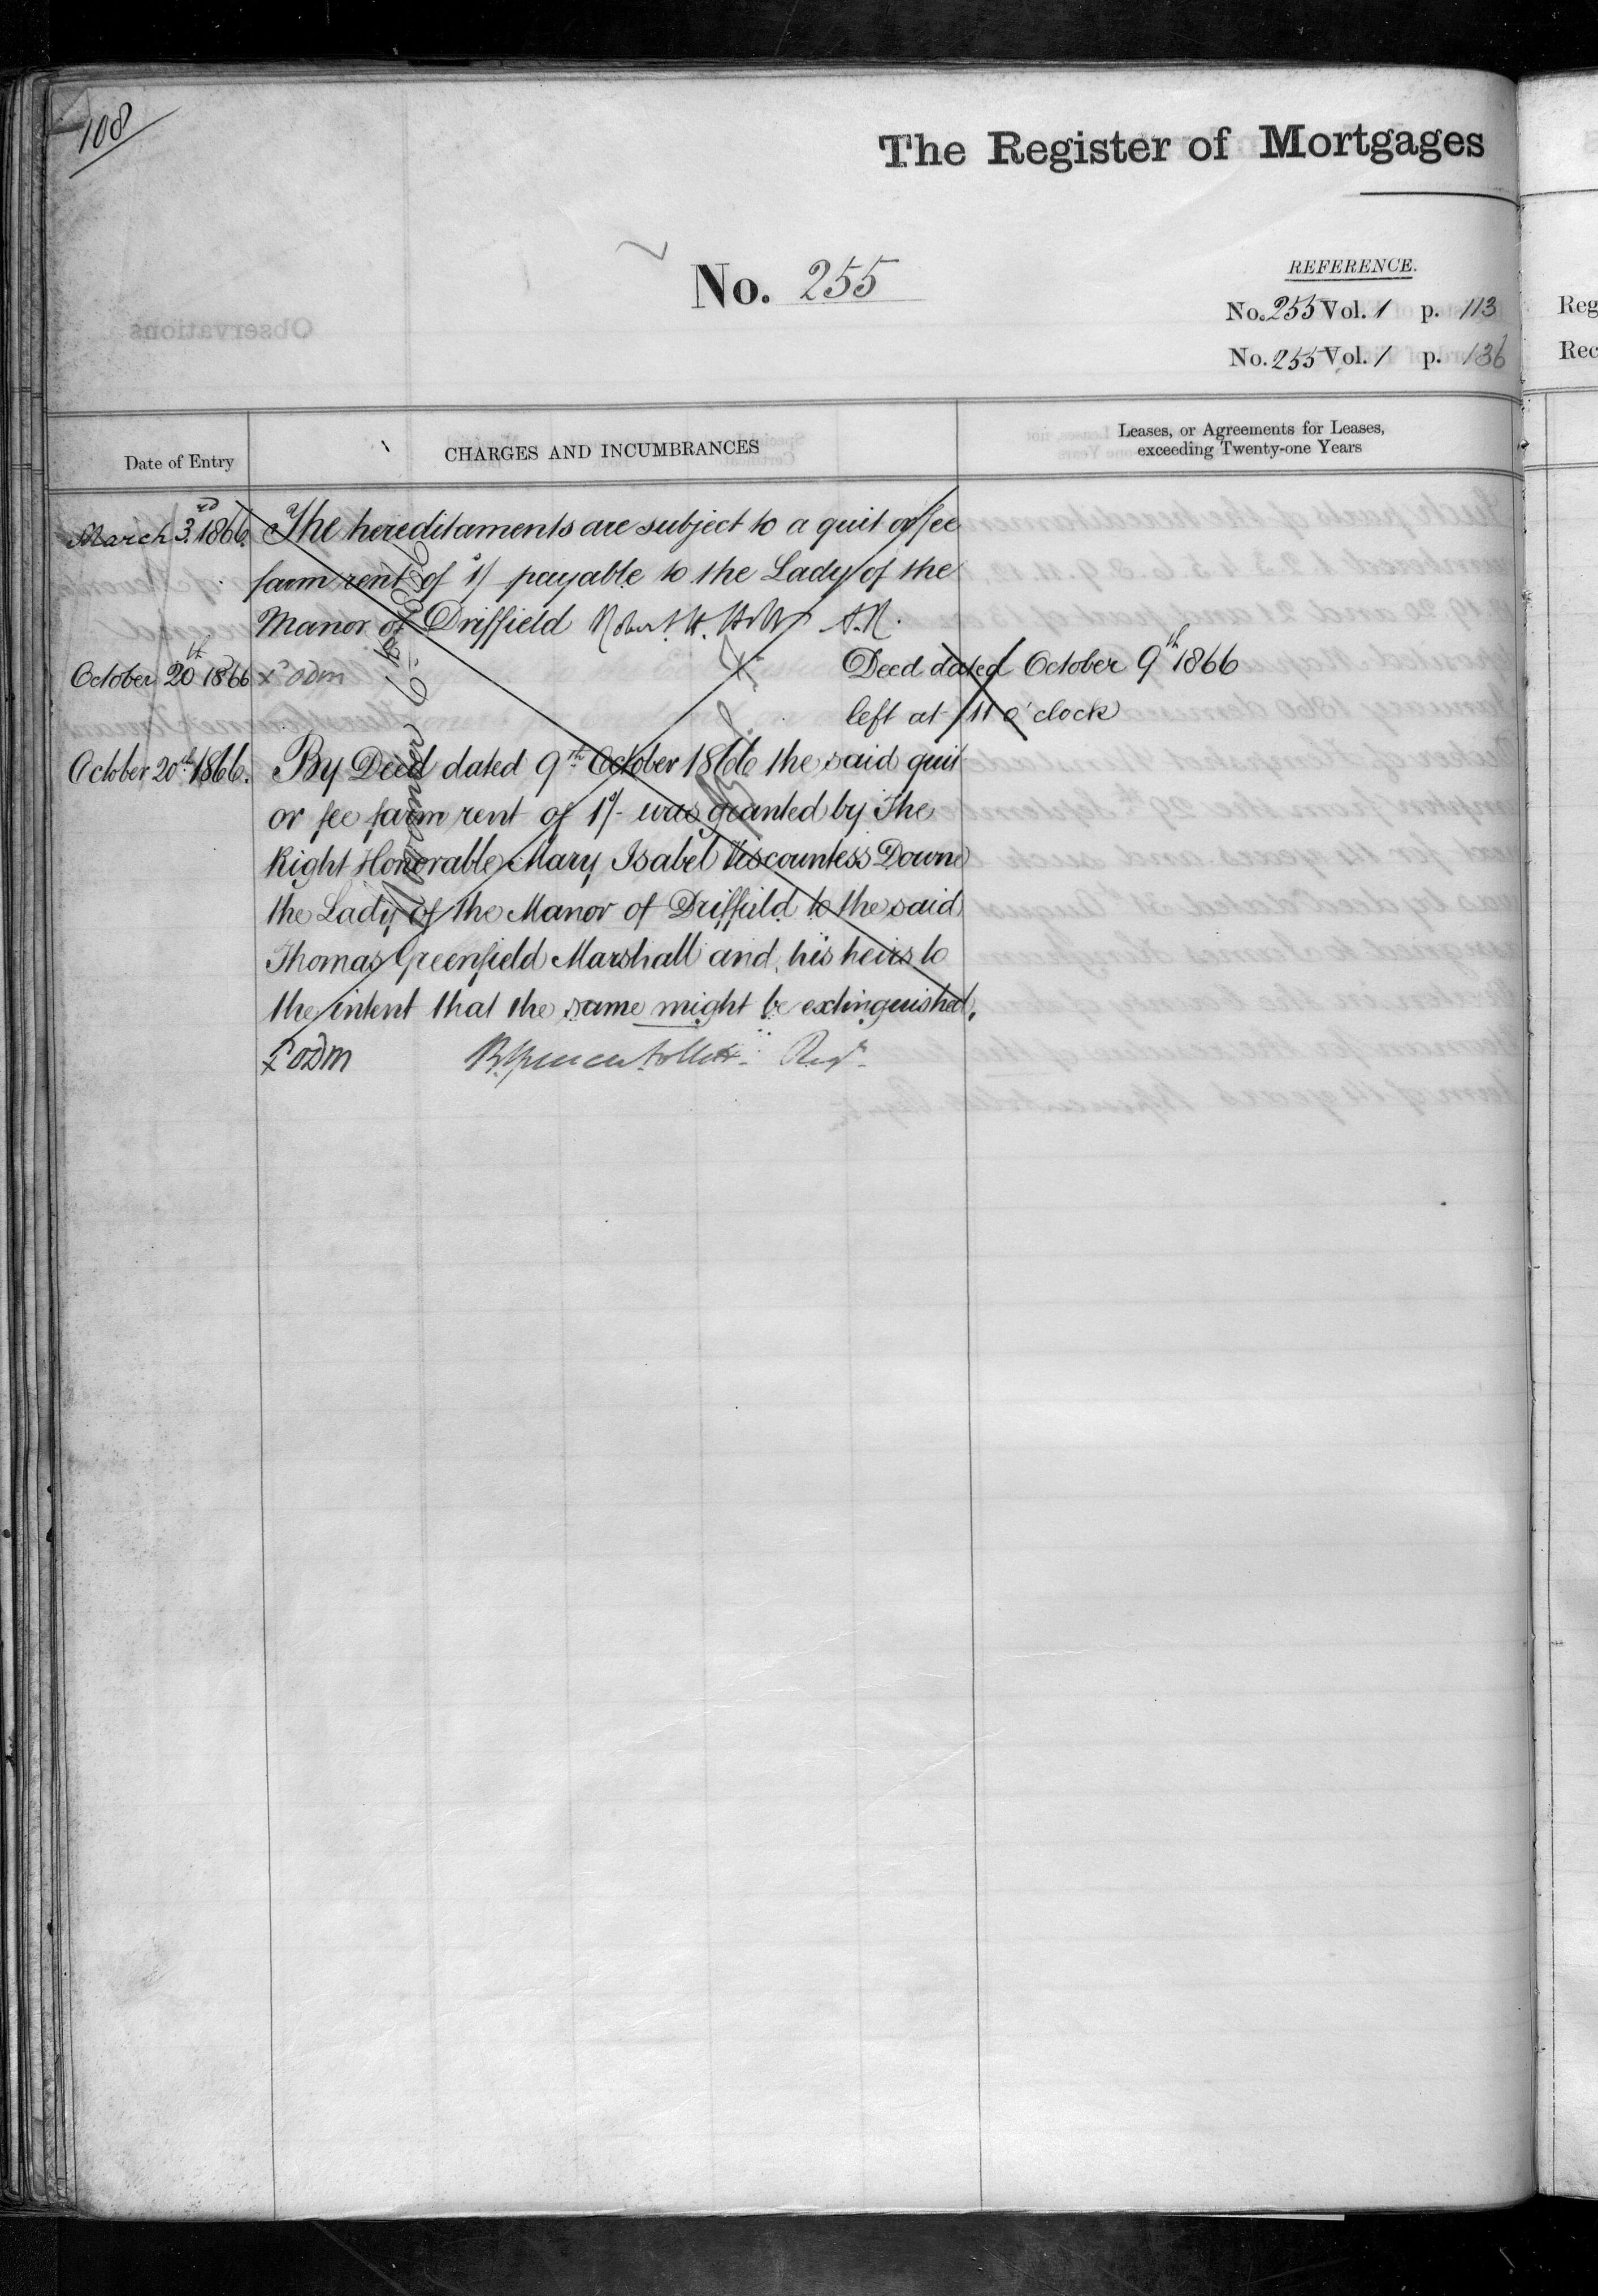 108
The Register of Mortgages
No. 255
REFERENCE.
No. 255 Vol. 1 p. 113
No. 255 Vol. 1 p. 136
Date of Entry
CHARGES AND INCUMBRANCES
Leases, or Agreements for Leases,
exceeding Twenty-one Years
March 3rd 1866. The hereditaments are subject to a quit or fee
farm rent of 1/ payable to the Lady of the
Manor of Driffield Robert H. A.R.
October 20th 1866 Deed dated October 9th 1866
left at 11 o'clock
October 20th 1866. By Deed dated 9th October 1866 the said quit
or fee farm rent of 1/- was granted by The
Right Honorable Mary Isabel Viscountess Downe
the Lady of the Manor of Driffield to the said
Thomas Greenfield Marshall and his heirs to
the intent that the same might be extinguished.
ODM
November 6th 1866
Reg
Rec